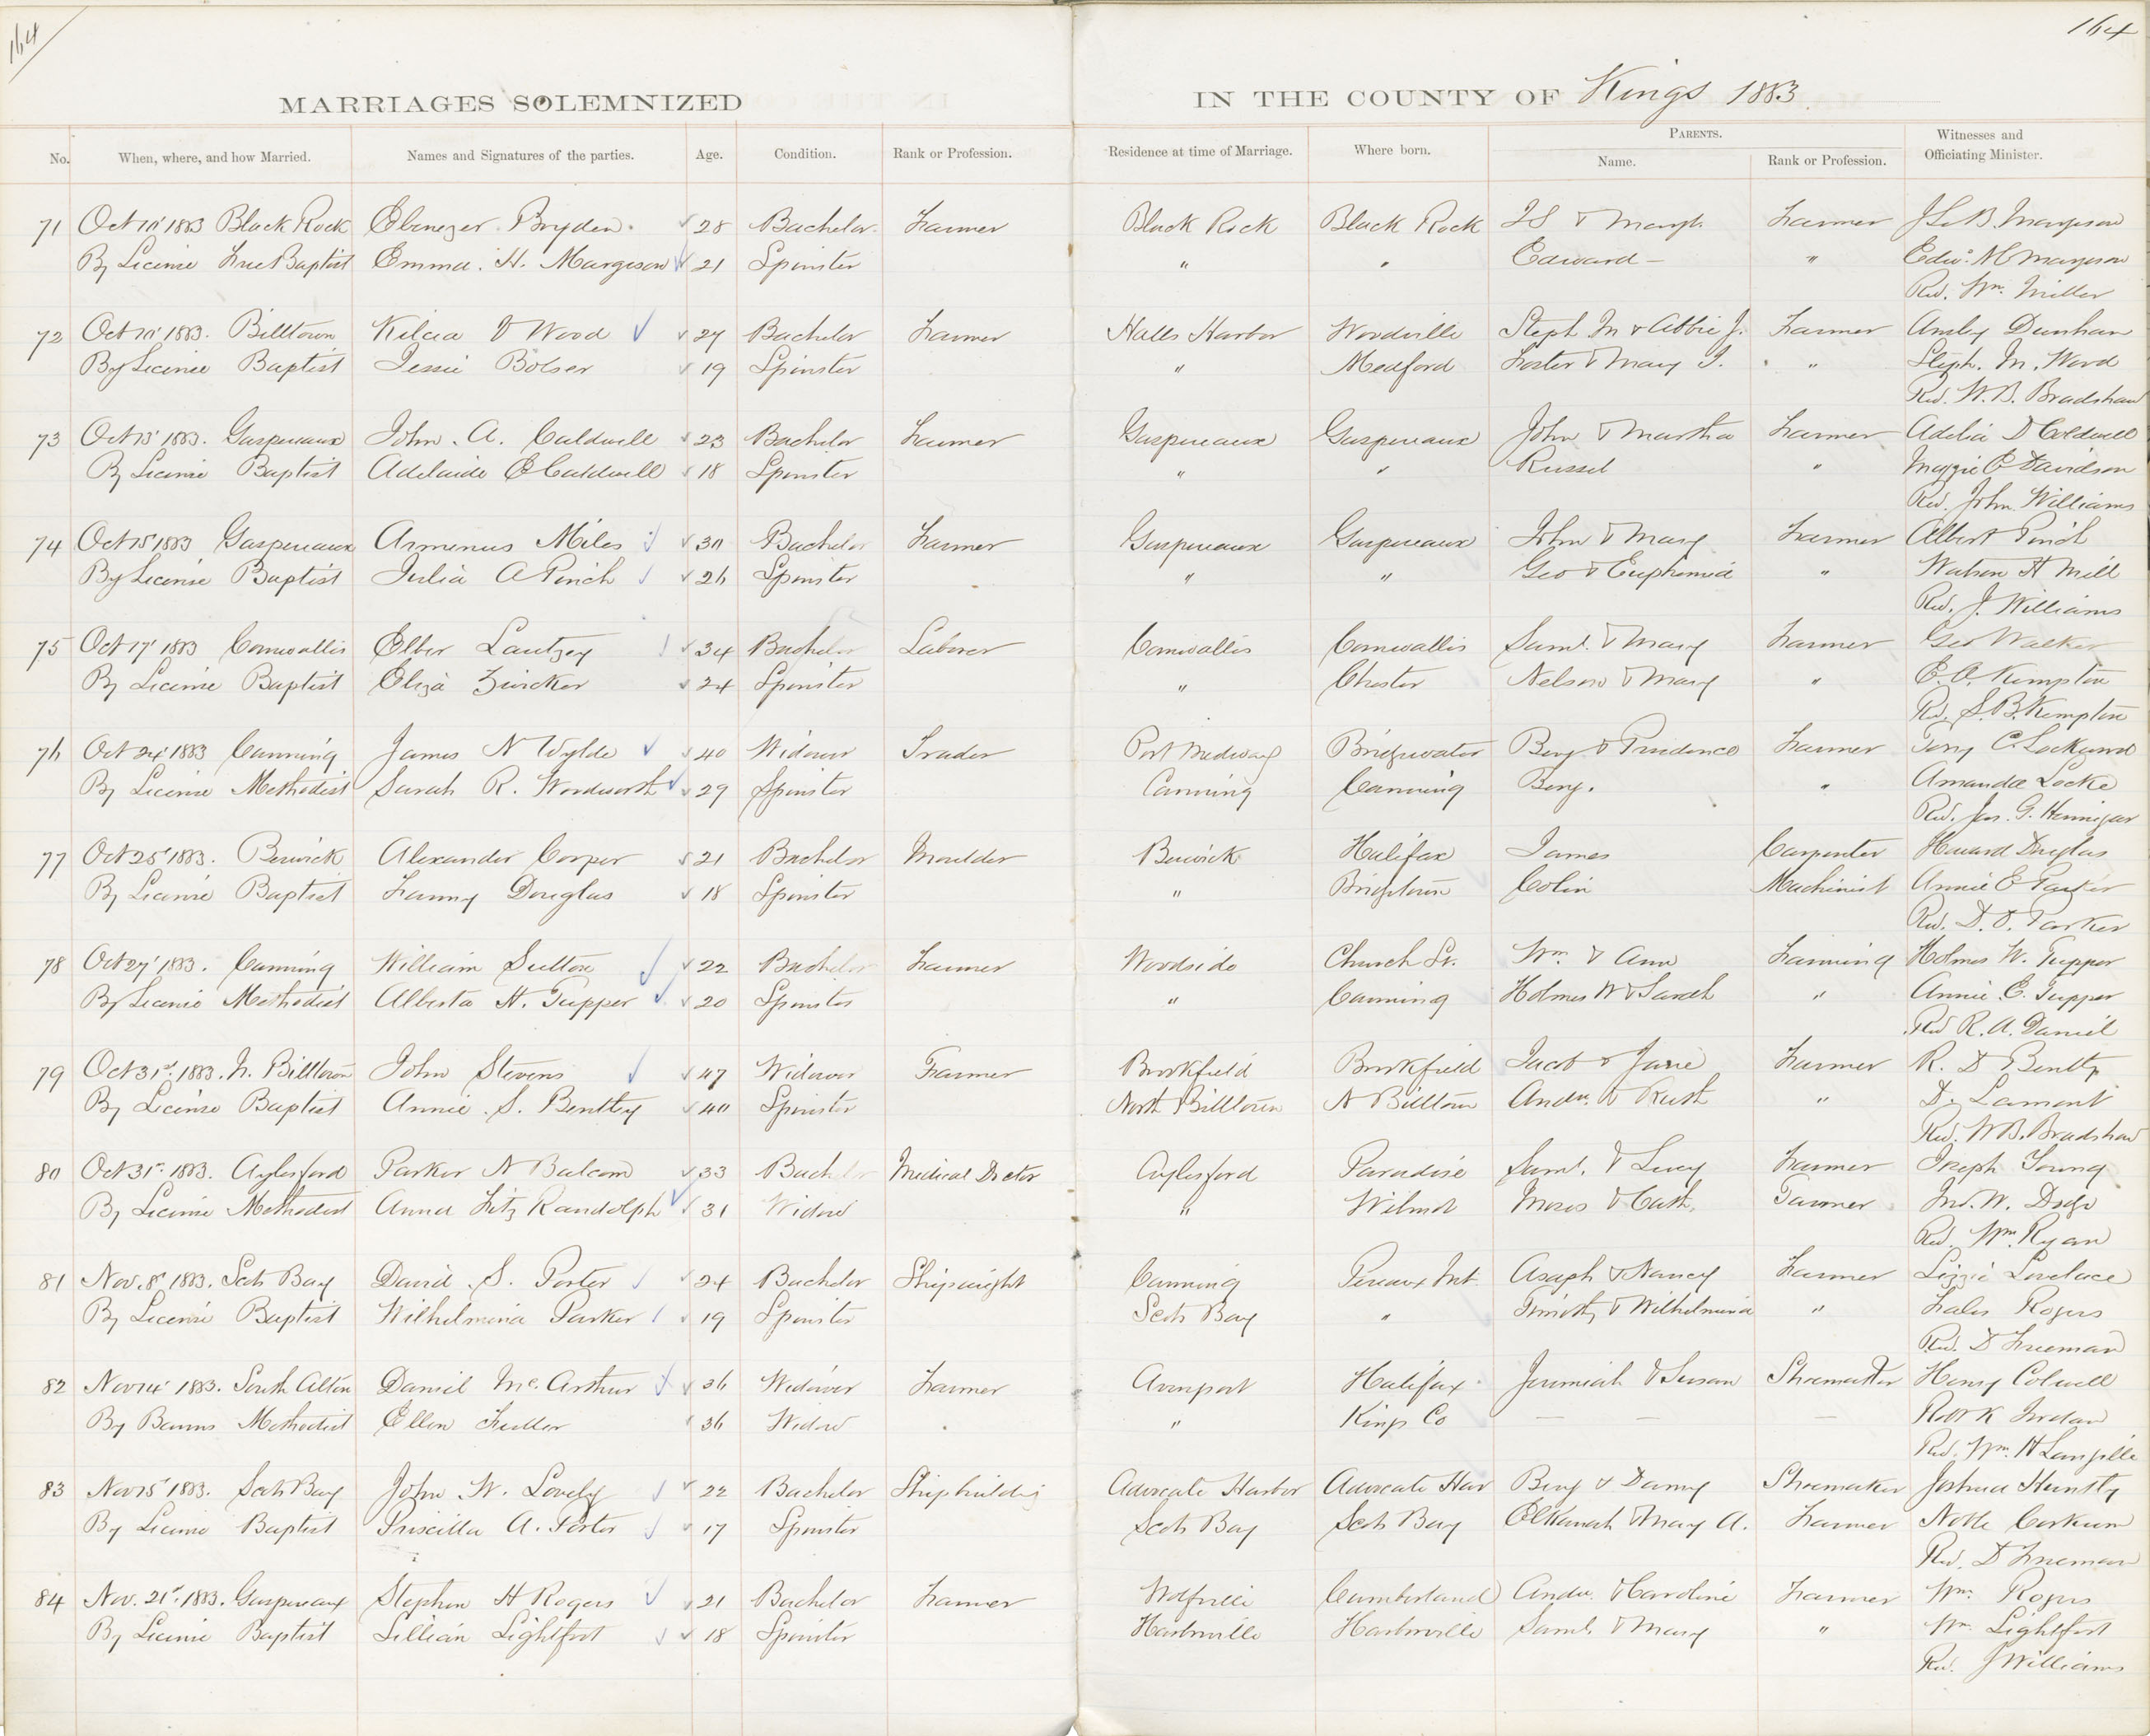 164
164
MARRIAGES SOLEMNIZED
IN THE COUNTY OF Kings 1883.
No. When, where, and how Married. Names and Signatures of the parties. Age. Condition. Rank or Profession. Residence at time of Marriage. Where born. PARENTS. Name. Rank or Profession. Witnesses and Officiating Minister.
71 Oct 10' 1883 Black Rock Ebenezer Bryden. 28 Bachelor Farmer Black Rock Black Rock & Margt. Farmer J. L. B. Margeson
By License Free Baptist Emma. H. Margeson 21 Spinster " " Edward — " Edw. M Margeson
Rev. Wm. Miller
72 Oct 10' 1883. Billtown Wood 27 Bachelor Farmer Halls Harbor Woodville Steph M & Abbie J. Farmer Ansley Dunham
By License Baptist Jessie Bolser 19 Spinster " Medford Foster & Mary J. " Steph. M. Wood
Rev. W. B. Bradshaw
73 Oct 13' 1883. Gaspereaux John. A. Caldwell 23 Bachelor Farmer Gaspereaux Gaspereaux John & Martha Farmer Adelia D Coldwell
By License Baptist Adelaide E Caldwell 18 Spinster " " Russel " Maggie E Davidson
Rev. John Williams
74 Oct 15' 1883 Gaspereaux Armenus Miles 30 Bachelor Farmer Gaspereaux Gaspereaux John & Mary Farmer Albert Pinch
By License Baptist Julia A Pinch 26 Spinster " " Geo & Euphemia " Watson A Mill
Rev. J. Williams
75 Oct 17' 1883 Cornwallis Elber Lautzey 34 Bachelor Laborer Cornwallis Cornwallis Saml. & Mary Farmer Geo Walker
By License Baptist Eliza Zwicker 24 Spinster " Chester Nelson & Mary " E. A. Kempton
Rev. S. B. Kempton
76 Oct 24' 1883 Canning James N Wylde 40 Widower Trader Port Medway Bridgewater Benj & Prudence Farmer C. Lockwood
By License Methodist Sarah R. Wordsworth 29 Spinster Canning Canning Benj. " Amanda Locke
Rev. Jas. G. Hennigar
77 Oct 25' 1883. Berwick Alexander Corper 21 Bachelor Moulder Berwick Halifax James Carpenter Howard Douglas
By License Baptist Fanny Douglas 18 Spinster " Bridgetown Colin Machinist Annie E Parker
Rev. D. O. Parker
78 Oct 27' 1883. Canning William Sutton 22 Bachelor Farmer Woodside Church St. Wm. & Ann Farming Holmes W. Tupper
By License Methodist Alberta H. Tupper 20 Spinster " Canning Holmes W & Sarah " Annie E. Tupper
Rev R. A. Daniel
79 Oct 31st. 1883. N. Billtown John Stevens 47 Widower Farmer Brookfield Brookfield Jacob & Jane Farmer R. D Bently
By License Baptist Annie. S. Bentley 40 Spinster North Billtown N Billtown Andw. & Ruth " D. Lamont
Rev. W B. Bradshaw
80 Oct 31st. 1883. Aylesford Parker N Balcom 33 Bachelor Medical Doctor Aylesford Paradise Saml. & Lucy Farmer Joseph Young
By License Methodist Anna Fitz Randolph 31 Widow " Wilmot Moses & Cath. Farmer Jno. W. Dodge
Rev. Wm. Ryan
81 Nov. 8' 1883. Scots Bay David. S. Porter 24 Bachelor Shipwright Canning Pereaux Mt. Asaph & Nancy Farmer Lizzie Lovelace
By License Baptist Wilhelmina Parker 19 Spinster Scots Bay " Timothy & Wilhelmina " Fales Rogers
Rev. D Freeman
82 Nov 14' 1883. South Alton Daniel Mc. Arthur 36 Widower Farmer Avonport Halifax Jeremiah & Susan Shoemaker Henry Colwell
By Banns Methodist Ellen Fuller 36 Widow " Kings Co — — — Robt K Jordan
Rev. Wm. H Langille
83 Nov 15' 1883. Scots Bay John W. Lovely 22 Bachelor Shipbuilding Advocate Harbor Advocate Har Benj & Shoemaker Joshua Huntly
By License Baptist Priscilla A. Porter 17 Spinster Scots Bay Scots Bay Elkanah & Mary A. Farmer Noble Corkum
Rev. D Freeman
84 Nov. 21st. 1883. Gaspereaux Stephen H Rogers 21 Bachelor Farmer Wolfville Cumberland Andw. & Caroline Farmer Wm. Rogers
By License Baptist Lillian Lightfoot 18 Spinster Harborville Harborville Saml. & Mary " Wm. Lightfoot
Rev. J Williams